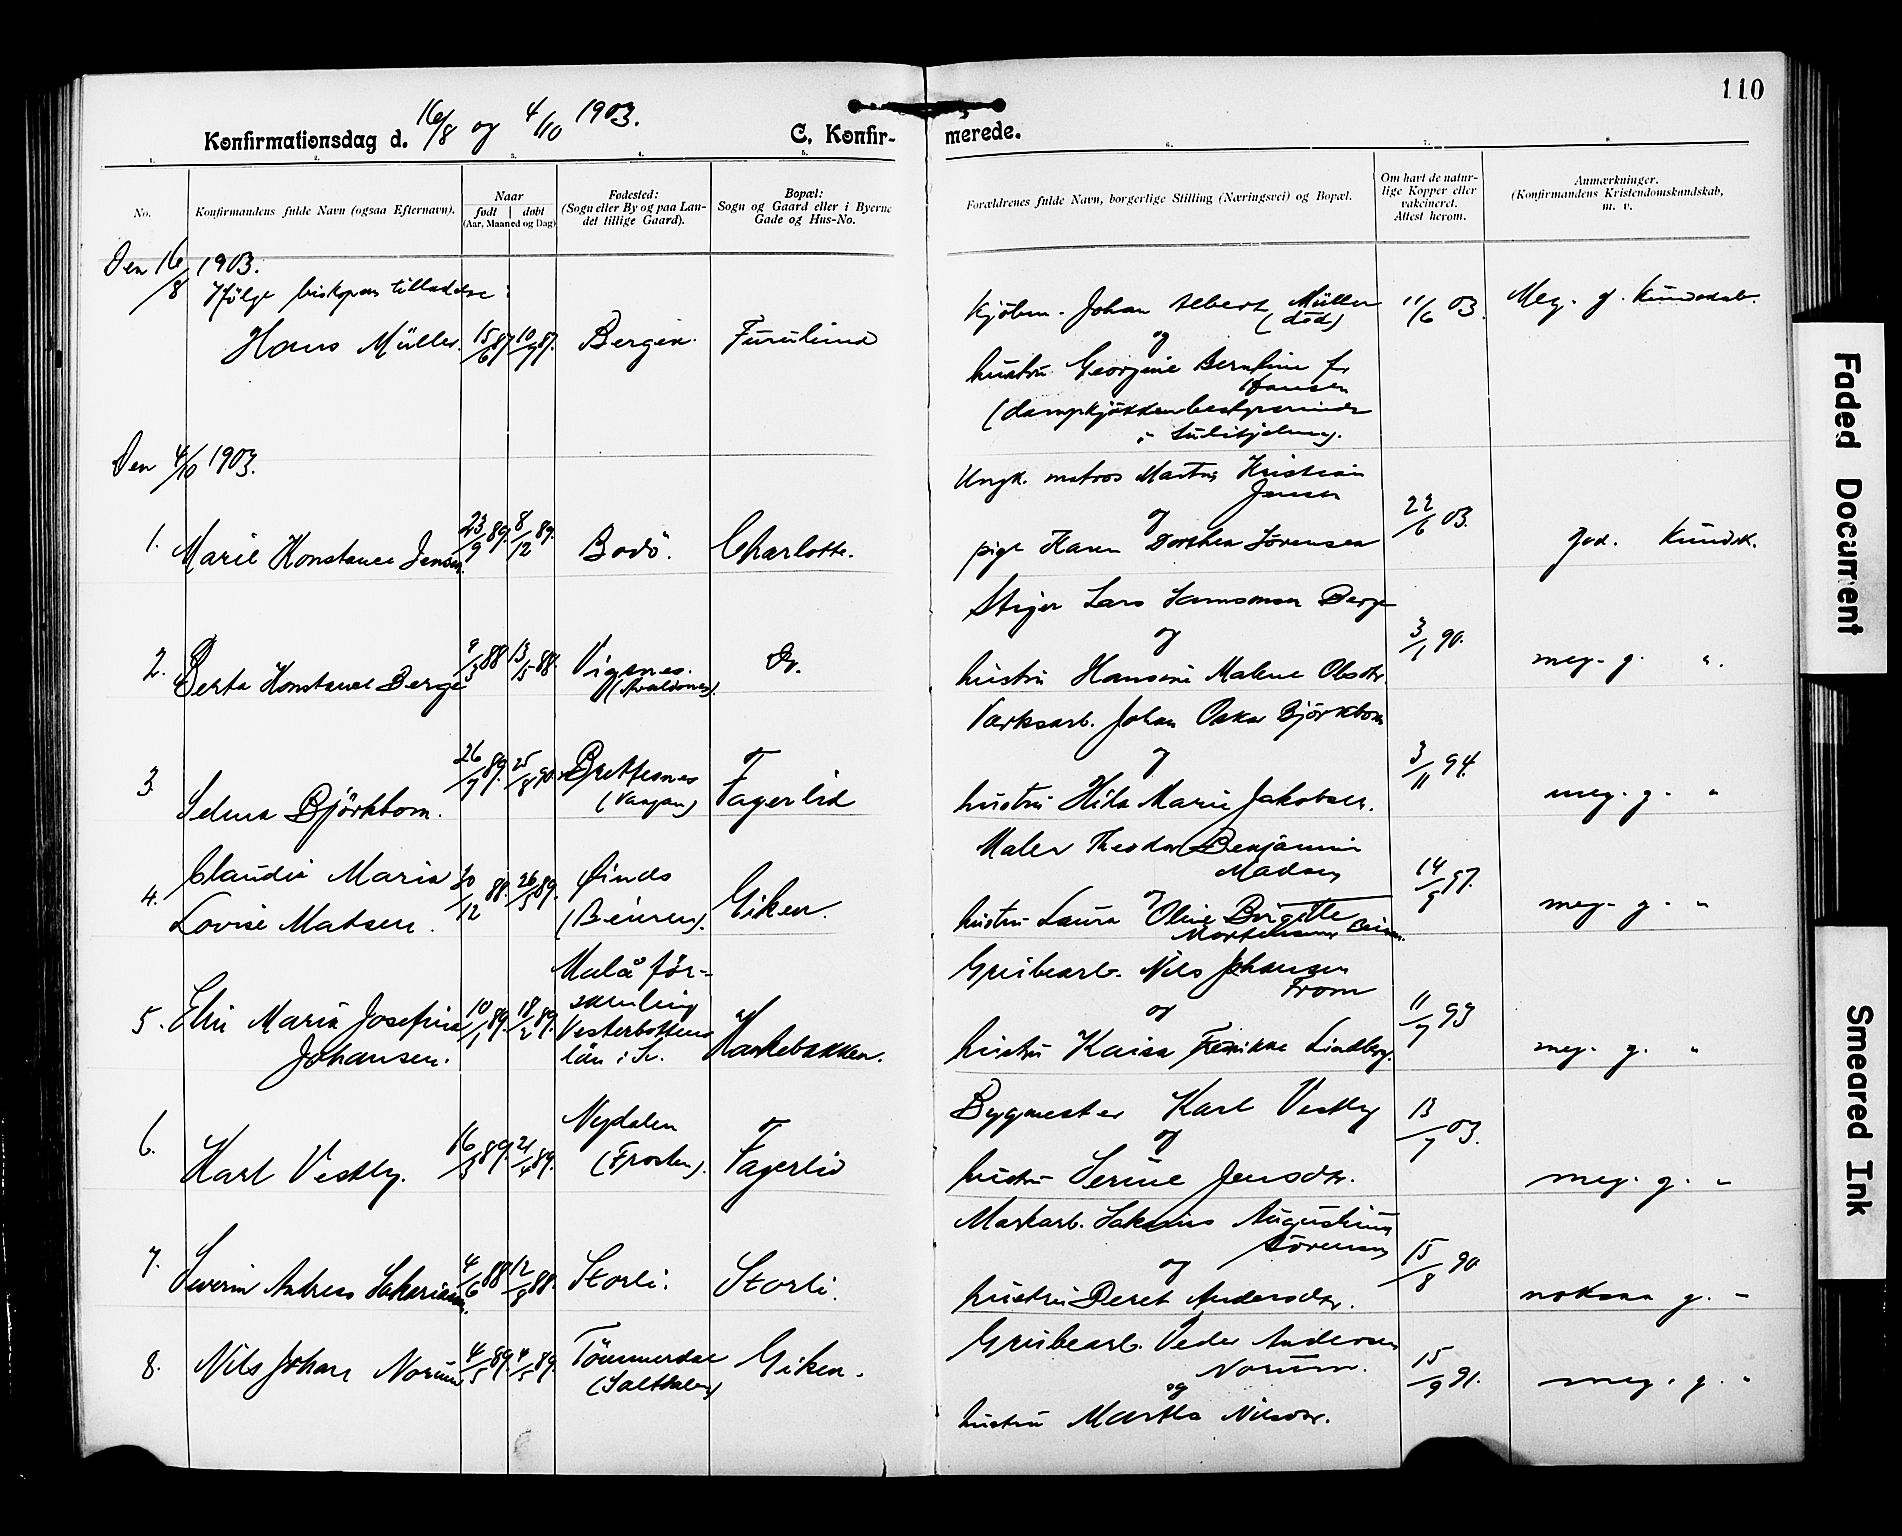 110
Konfirmationsdag d. 16/8 og 4/10 1903.
C. Konfirmerede.
1. 2. 3. 4. 5. 6. 7. 8.
No.
Konfirmandens fulde Navn (ogsaa Efternavn).
Naar
født | døbt
(Aar, Maaned og Dag)
Fødested:
(Sogn eller By og paa Landet tillige Gaard).
Bopæl:
Sogn og Gaard eller i Byerne Gade og Hus-No.
Forældrenes fulde Navn, borgerlige Stilling (Næringsvei) og Bopæl.
Om havt de naturlige Kopper eller vakcineret. Attest herom.
Anmærkninger.
(Konfirmandens Kristendomskundskab, m. v.
Den 16/8 1903.
Ifölge biskopens tilladelse:
Hans Müller. 15/6 87. 10/7 87. Bergen. Furulund
Kjöbm. Johan Albert Müller
(död)
og
hustru Georgine Berntine f.
Hansen
(dampkjökkenbestyrerinde
i Sulitjelma).
11/6 03.
Meg. g. kundskab.
Den 4/10 1903.
1. Marie Konstance Jensen. 23/9 89. 8/12 89. Bodö. Charlotta.
Ungk. matros Martin Kristian
Jensen
og
pige Karen Dorthea Sörensen
22/6 03.
god. Kundsk.
2. Berta Konstance Berge 9/3 88 13/5 88. Vigsnes.
(Avaldsnes).
Do.
Stiger Lars Samsonsen Berge
og
hustru Hansine Malene Olsdtr.
3/1 90.
meg. g. "
3. Selma Björkbom. 26/9 89. 25/8 90. Brettesnes
(Vaagan)
Fagerlid
Værksarb. Johan Oskar Björkbom
og
hustru Hilda Marie Jakobsen.
3/11 94.
meg. g. "
4. Claudie Maria
Lovise Madsen. 30/12 88. 26/5 89.
(Beiaren).
Giken.
Maler Theodor Benjamin
Madsen
og
hustru Laura Oline Birgitte
Mortensen
14/9 97.
meg. g. "
5. Elin Maria Josefina
Johansen. 10/1 89. 18/2 89.
Malå för-
samling
Vesterbottens
län i Sv.
Hankebakken.
Grubearb. Nils Johansen
From
og
hustru Kaisa Fredrikke Lindberg.
11/7 93
meg. g. "
6. Karl Vestby. 16/3 89. 21/4 89.
(Frosten).
Fagerlid
Bygmester Karl Vestby
og
hustru Serine Jensdtr.
13/7 03.
meg. g. "
7. Severin Andreas Sakariassen. 4/6 88 12/8 88. Storli. Storli.
Markarb. Sakarias Augustinus
Sörensen
og
hustru Beret Andersdtr.
15/8 90
noksaa g. "
8. Nils Johan Norum 4/5 89. 4/5 89. Tömmerdal
(Saltdalen)
Giken.
Grubearb. Peder Andersen
Norum.
og
hustru Martha Nilsdtr.
15/9 91.
meg. g. "
Faded Document
Smeared Ink